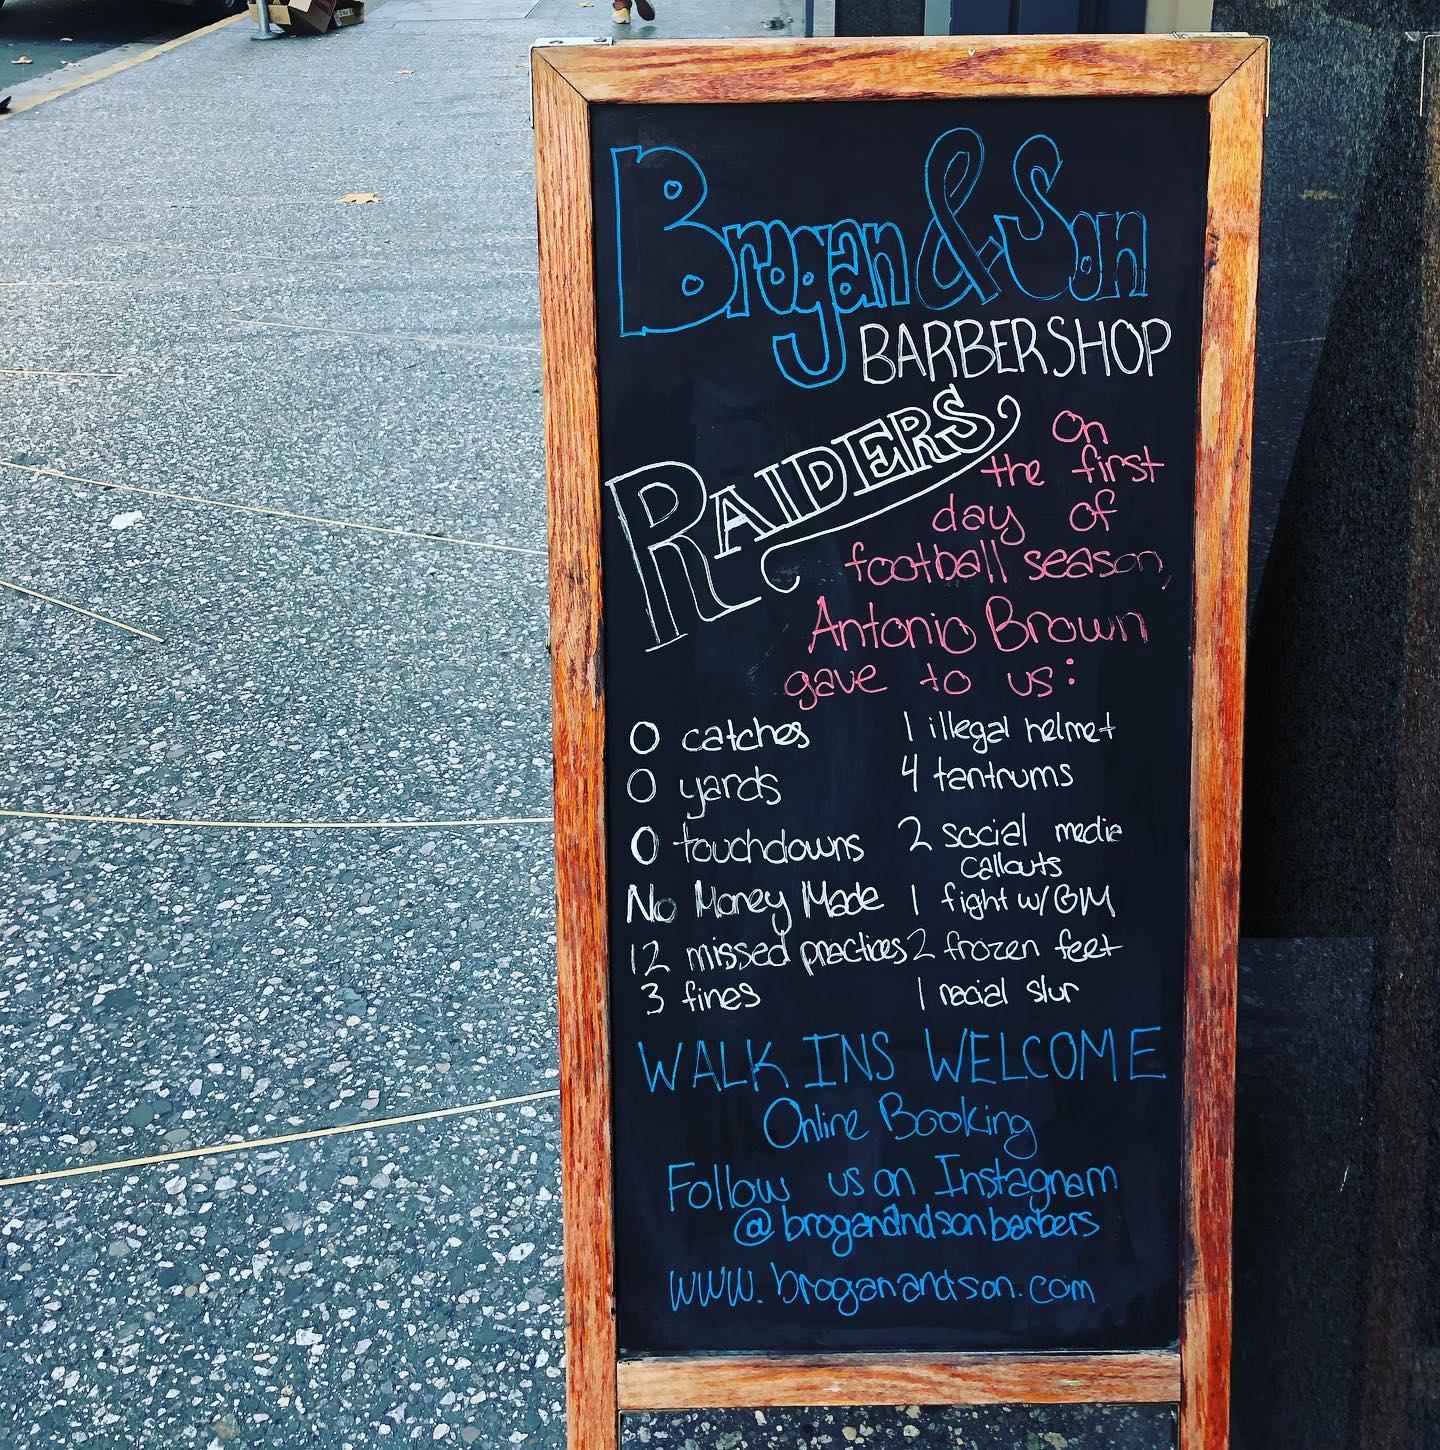 Brogan & Son
BARBERSHOP
RAIDERS
On
the first
day of
football season,
Antonio Brown
gave to us:
0 catches
0 yards
0 touchdowns
No Money Made
12 missed practices
3 fines
1 illegal helmet
4 tantrums
2 social media
callouts
1 fight w/ GM
2 frozen feet
1 racial slur
WALK INS WELCOME
Online Booking
Follow us on Instagram
@broganandsonbarbers
www.broganandson.com